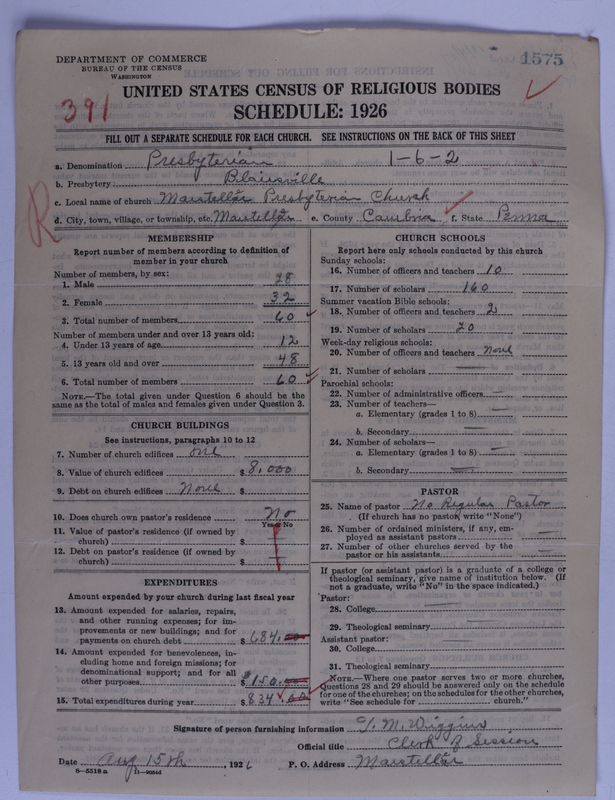 DEPARTMENT OF COMMERCE
BUREAU OF THE CENSUS
WASHINGTON
1575
391
UNITED STATES CENSUS OF RELIGIOUS BODIES
SCHEDULE: 1926
FILL OUT A SEPARATE SCHEDULE FOR EACH CHURCH. SEE INSTRUCTIONS ON THE BACK OF THIS SHEET
R
a. Denomination Presbyterian 1-6-2
b. Presbytery Blairsville
c. Local name of church Marstellar Presbyterian Church
d. City, town, village, or township, etc. Marstellar e. County Cambria f. State Penna
MEMBERSHIP
Report number of members according to definition of
member in your church
Number of members, by sex:
1. Male 28
2. Female 32
3. Total number of members 60
Number of members under and over 13 years old:
4. Under 13 years of age 12
5. 13 years old and over 48
6. Total number of members 60
NOTE.—The total given under Question 6 should be
same as the total of males and females given under Question 3.
CHURCH BUILDINGS
See instructions, paragraphs 10 to 12
7. Number of church edifices one
8. Value of church edifices $ 8,000
9. Debt on church edifices None $
10. Does church own pastor's residence No
Yes or No
11. Value of pastor's residence (if owned by
church) $
12. Debt on pastor's residence (if owned by
church) $
EXPENDITURES
Amount expended by your church during last fiscal year
13. Amount expended for salaries, repairs,
and other running expenses; for im-
provements or new buildings; and for
payments on church debt $ 684.00
14. Amount expended for benevolences, in-
cluding home and foreign missions; for
denominational support; and for all
other purposes $ 150.00
15. Total expenditures during year $ 834.00
CHURCH SCHOOLS
Report here only schools conducted by this church
Sunday schools:
16. Number of officers and teachers 10
17. Number of scholars 160
Summer vacation Bible schools:
18. Number of officers and teachers 2
19. Number of scholars 20
Week-day religious schools:
20. Number of officers and teachers None
21. Number of scholars —
Parochial schools:
22. Number of administrative officers —
23. Number of teachers—
a. Elementary (grades 1 to 8) —
b. Secondary —
24. Number of scholars—
a. Elementary (grades 1 to 8) —
b. Secondary —
PASTOR
25. Name of pastor No Regular Pastor
(If church has no pastor, write "None")
26. Number of ordained ministers, if any, em-
ployed as assistant pastors —
27. Number of other churches served by the
pastor or his assistants —
If pastor (or assistant pastor) is a graduate of a college or
theological seminary, give name of institution below. (If
not a graduate, write "No" in the space indicated.)
Pastor:
28. College —
29. Theological seminary —
Assistant pastor:
30. College —
31. Theological seminary —
NOTE.—Where one pastor serves two or more churches,
Questions 28 and 29 should be answered only on the schedule
for one of the churches; on the schedules for the other churches,
write "See schedule for church."
Signature of person furnishing information T. M. Wiggins
Official title Clerk of Session
Date Aug 15th, 1926 P. O. Address Marstellar
6-5518 a 11-9084d